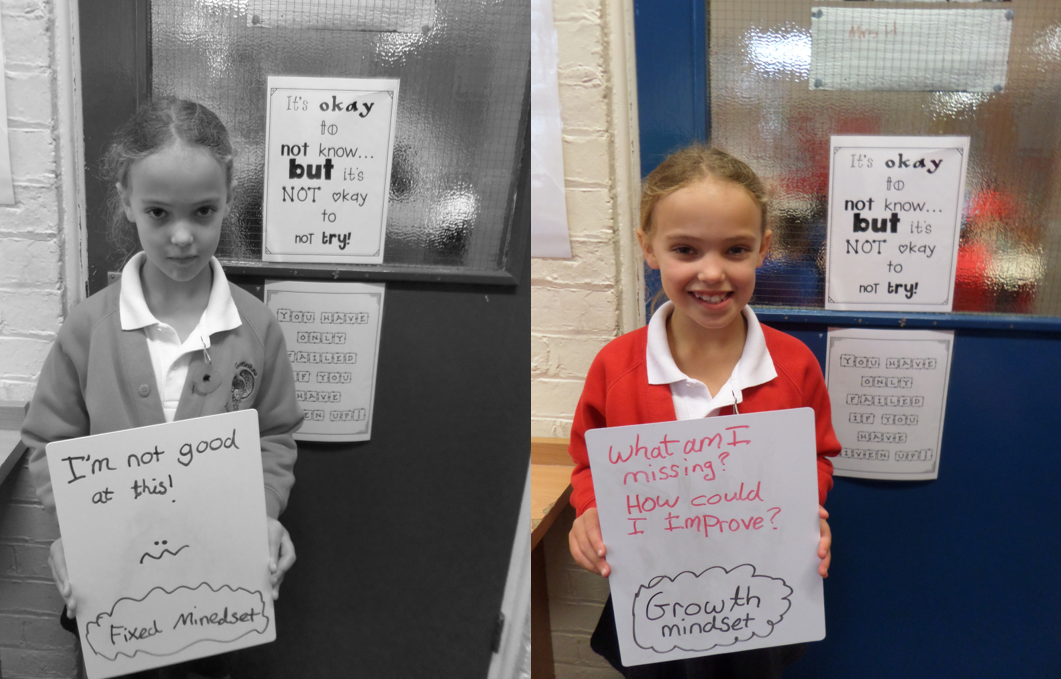 It's okay
to
not know...
but it's
NOT okay
to
NOT try!
YOU HAVE
ONLY
FAILED
IF YOU
HAVE
EN UP!
I'm not good
at this!
Fixed Minedset
Mrs H
It's okay
to
not know...
but it's
NOT okay
to
NOT try!
YOU HAVE
ONLY
FAILED
IF YOU
HAVE
IVEN UP!
What am I
missing?
How could
I Improve?
Growth
mindset